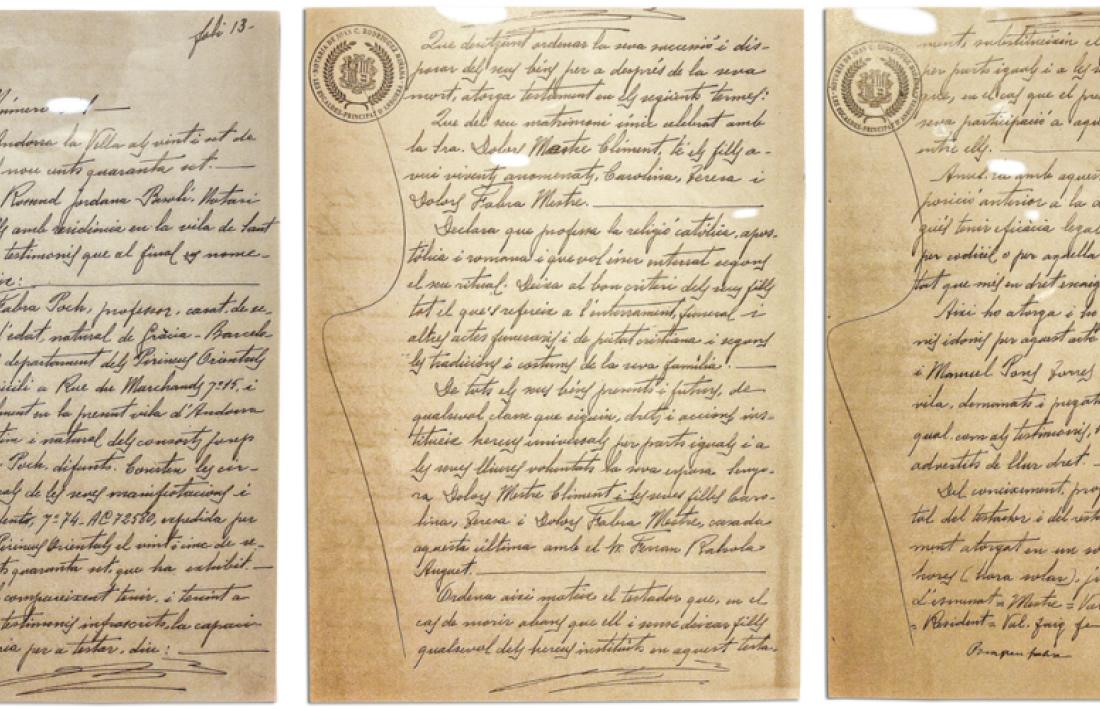 foli 13-
Número
Andorra la Vella als vint i set de
nou cents quaranta set.
Rossend Jordana Besolí. Notari
amb residència en la vila de Sant
testimonis que al final es nome-
Fabra Poch, professor, casat, de se-
d'edat, natural de Gràcia - Barcelo
departament dels Pirineus Orientals
a Rue du Marchands nº 15, i
en la present vila d'Andorra
i natural dels consorts Josep
Poch, difunts. Consten les cir-
de les seves manifestacions i
nº 74- AC 72580, expedida per
Pirineus Orientals el vint i cinc de se-
quaranta set, que ha exhibit.
compareixent tenir, i tenint a
testimonis infrascrits, la capaci-
per a testar, diu:
NOTARIA DE JOAN C. RODRÍGUEZ MIÑANA
LES ESCALDES-PRINCIPAT D'ANDORRA
Que desitjant ordenar la seva successió i dis-
posar dels seus béns per a després de la seva
mort, atorga testament en els següents termes:
Que del seu matrimoni únic celebrat amb
la Sra. Dolors Mestre Climent, té els fills a-
vui vivents, anomenats, Carolina, Teresa i
Dolors Fabra Mestre.
Declara que professa la religió catòlica, apos-
tòlica i romana i que vol ésser enterrat segons
el seu ritual. Deixa al bon criteri dels seus fills
tot el que's refereix a l'enterrament, funeral i
altres actes funeraris i de pietat cristiana i segons
les tradicions i costums de la seva família.
De tots els seus béns presents i futurs, de
qualsevol classe que siguin, drets i accions ins-
titueix hereus universals per parts iguals i a
les seves lliures voluntats la seva esposa Senyo-
ra Dolors Mestre Climent i les seves filles Caro-
lina, Teresa i Dolors Fabra Mestre, casada
aquesta última amb el Sr. Ferran Rahola
Auguet.
Ordena així mateix el testador que, en el
cas de morir abans que ell i sense deixar fills
qualsevol dels hereus instituïts en aquest testa-
NOTARIA DE JOAN C. RODRÍGUEZ MIÑANA
LES ESCALDES-PRINCIPAT D'ANDORRA
ment, substitueixin el
per parts iguals i a les
que, en el cas que el pre
seva participació a aque
entre ells.
amb aquest
posició anterior a la
tenir eficàcia legal
per codicil o per aquella
tat que més en dret
Així ho atorga i ho
nis idonis per aquest acte
i Manuel Pons Torres
vila, demanats i pregats
qual com als testimonis,
advertits de llur dret.
Del coneixement, prof
tol del testador i del resta
ment atorgat en un so
hores (hora solar),
L'esmenat = Mestre = Val
= Resident = Val.
Pompeu Fabra